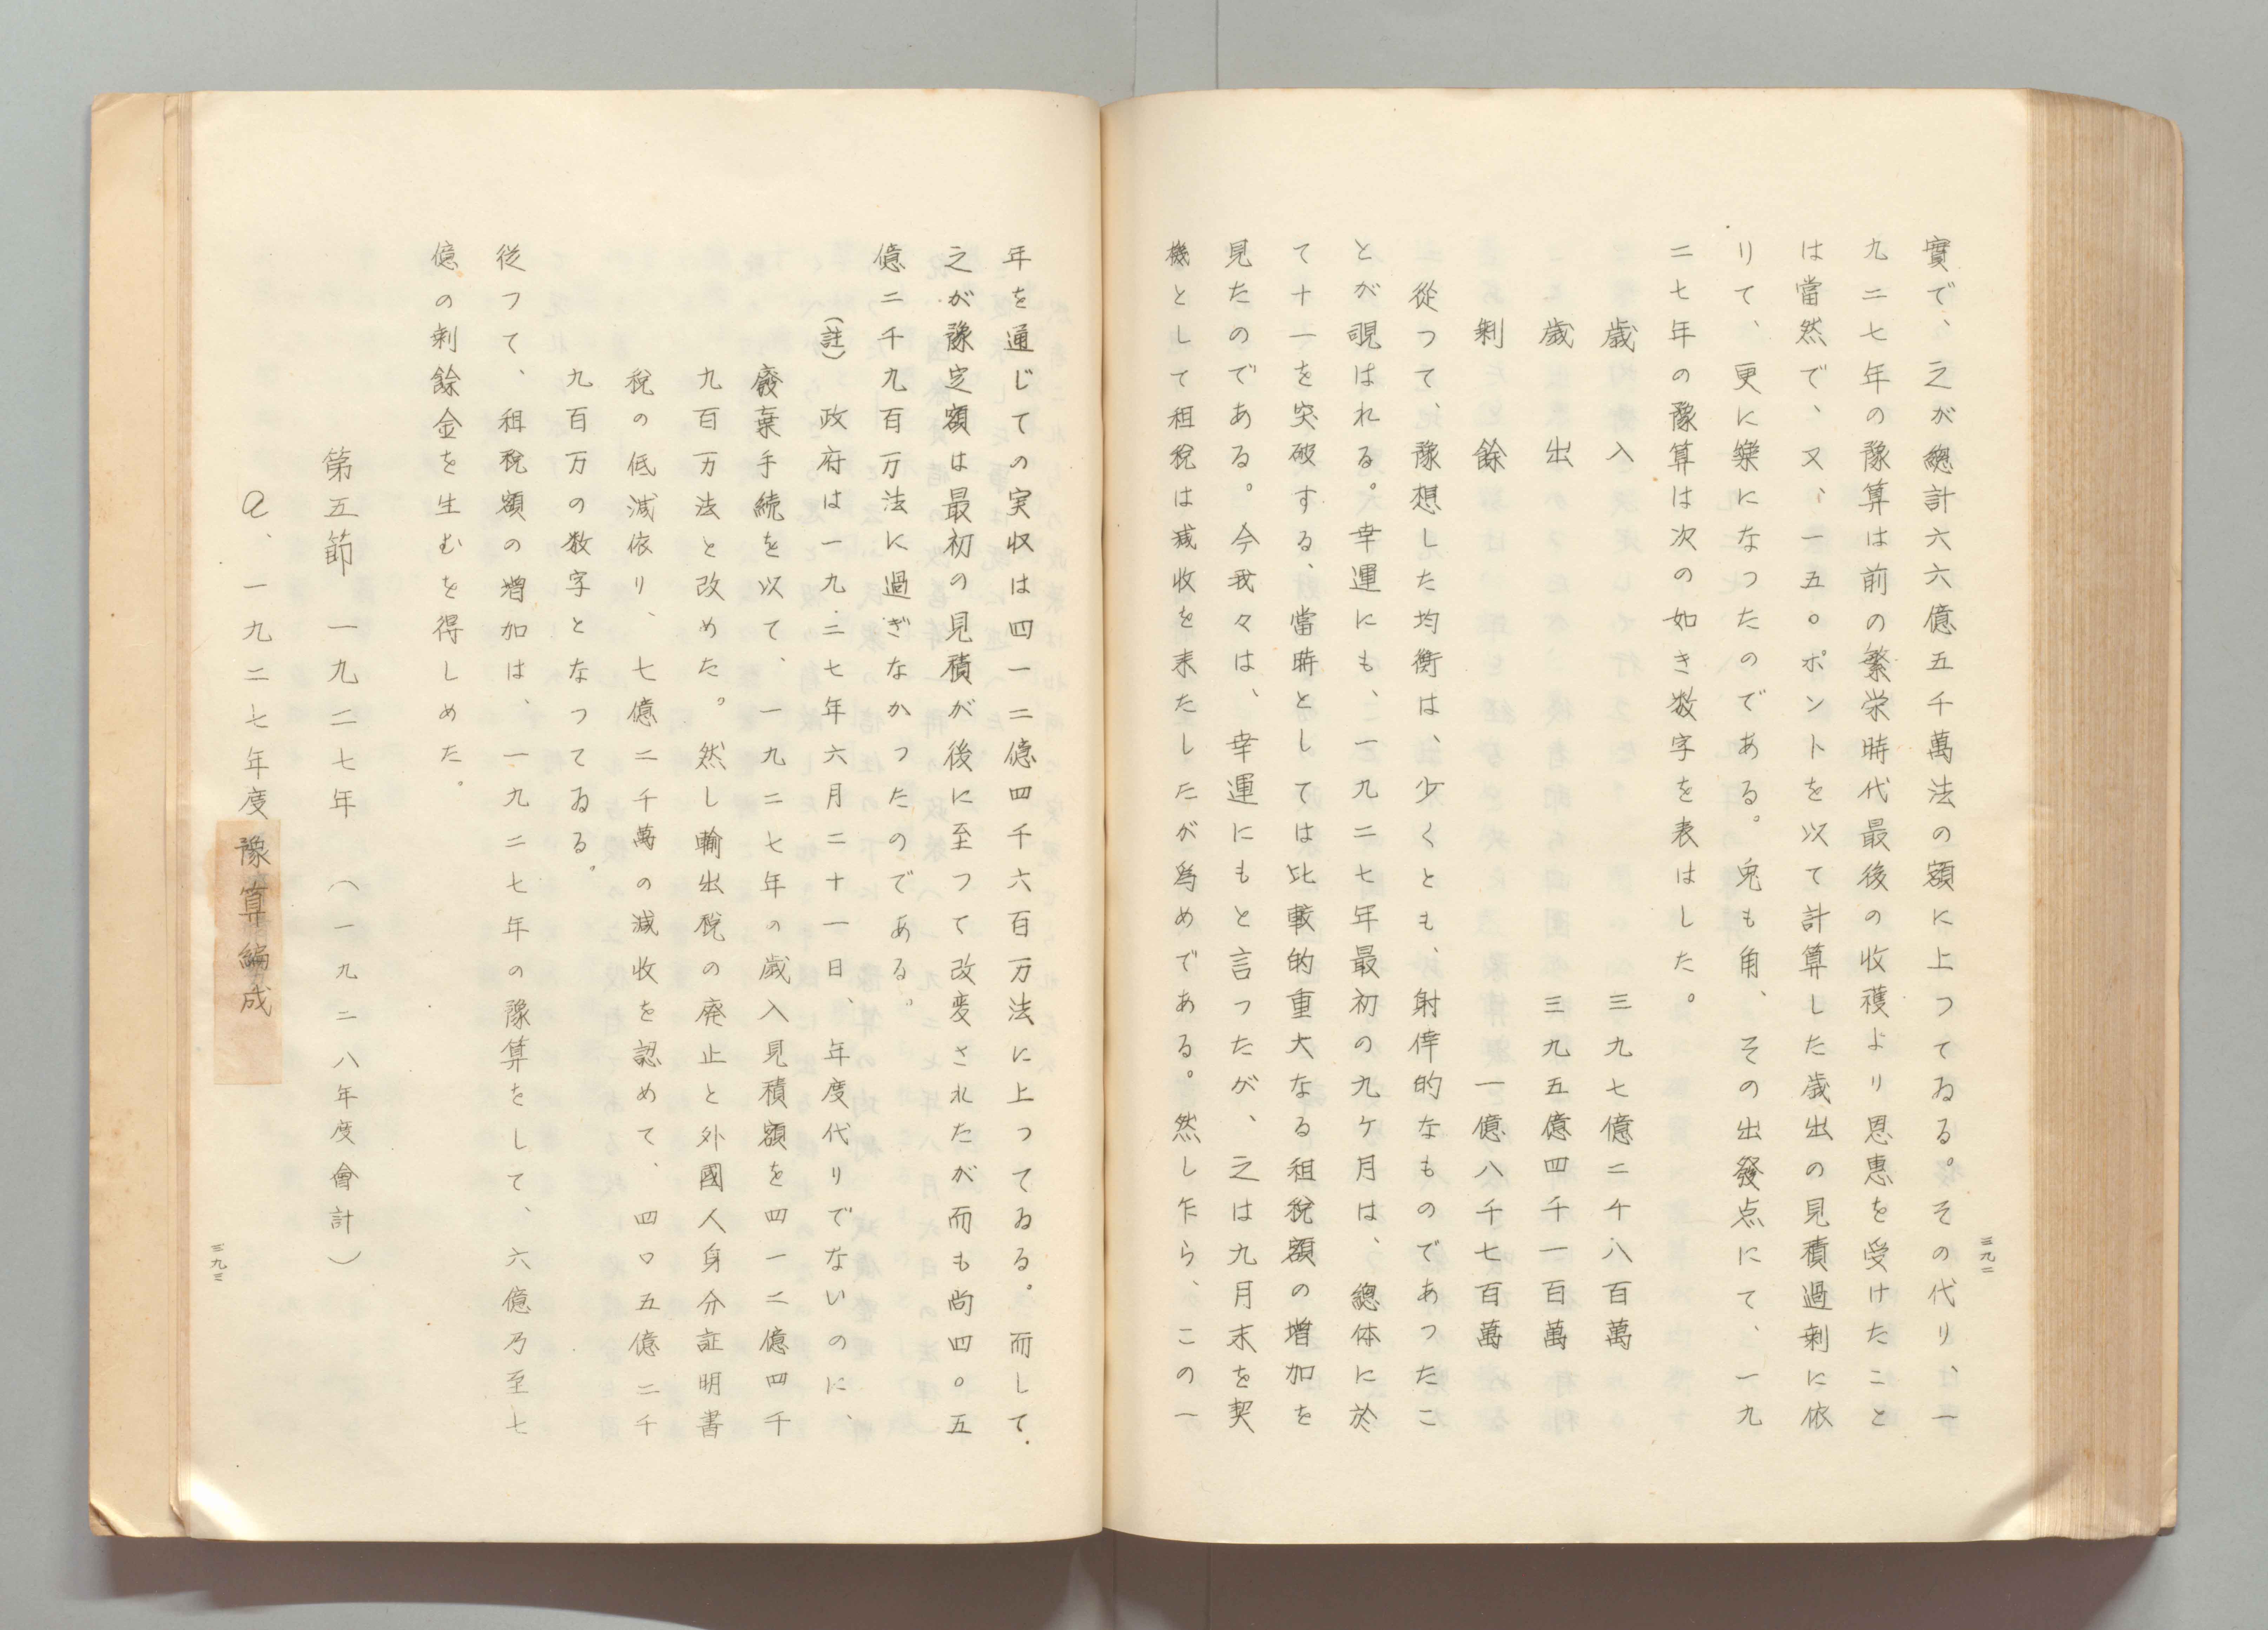 三九二
實で、之が總計六六億五千萬法の額に上つてゐる。その代り、一
九二七年の豫算は前の繁栄時代最後の收穫より恩惠を受けたこと
は當然で、又、一五〇ポントを以て計算した歳出の見積過剰に依
りて、更に樂になつたのである。兎も角、その出發点にて、一九
二七年の豫算は次の如き数字を表はした。
歳入 三九七億二千八百萬
歳出 三九五億四千一百萬
剰餘 一億八千七百萬
從つて、豫想した均衡は、少くとも、射倖的なものであつたこ
とが覗はれる。幸運にも、一九二七年最初の九ケ月は、總体に於
て十一を突破する、當時としては比較的重大なる租稅額の増加を
見たのである。今我々は、幸運にもと言つたが、之は九月末を契
機として租稅は减收を来たしたが爲めである。然し乍ら、この一
年を通じての実収は四一二億四千六百万法に上つてゐる。而して
之が豫定額は最初の見積が後に至つて改変されたが而も尚四〇五
億二千九百万法に過ぎなかつたのである。
(註) 政府は一九二七年六月二十一日、年度代りでないのに、
廢棄手続を以て、一九二七年の歳入見積額を四一二億四千
九百万法と改めた。然し輸出稅の廃止と外國人身分証明書
稅の低减依り、七億二千萬の减收を認めて、四〇五億二千
九百万の数字となつてゐる。
従つて、租稅額の増加は、一九二七年の豫算をして、六億乃至七
億の剰餘金を生むを得しめた。
第五節 一九二七年 (一九二八年度會計)
a、一九二七年度豫算編成
三九三